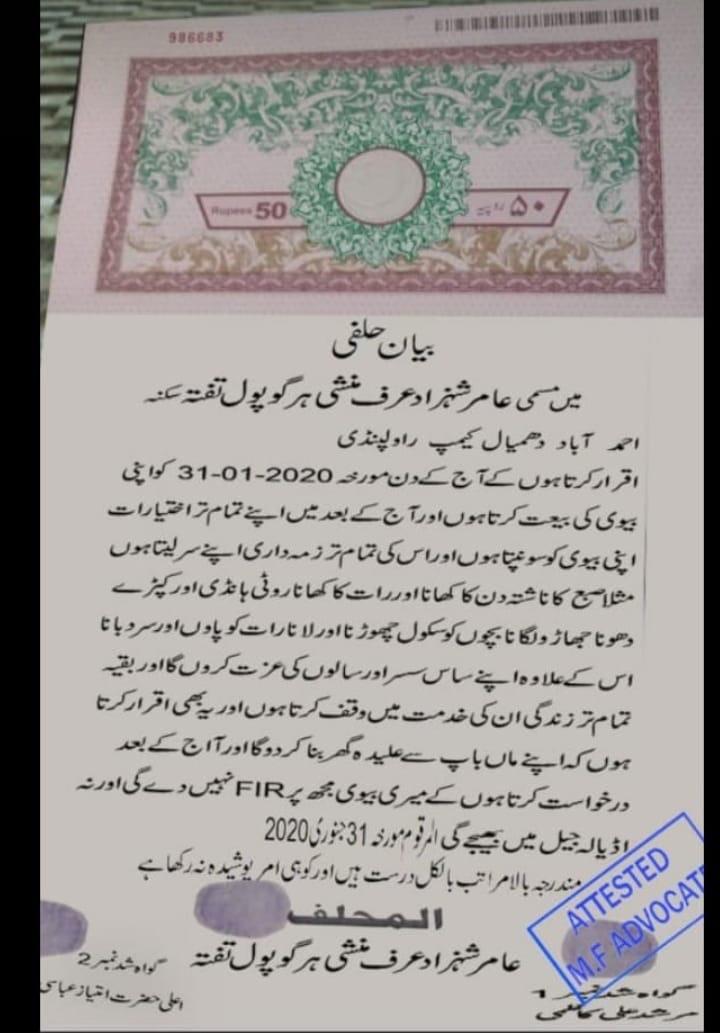 986683
Rupees 50
۵۰ روپیہ
بیان حلفی
میں مسمی عامر شہزاد عرف منشی ہرگوپول تفتہ سکنہ
احمد آباد دھمیال کیمپ راولپنڈی
اقرار کرتا ہوں کے آج کے دن مورخہ 31-01-2020 کو اپنی
بیوی کی بیعت کرتا ہوں اور آج کے بعد میں اپنے تمام تر اختیارات
اپنی بیوی کو سونپتا ہوں اور اس کی تمام تر زمہ داری اپنے سر لیتا ہوں
مثلا صبح کا ناشتہ دن کا کھانا اور رات کا کھانا روٹی ہانڈی اور کپڑے
دھونا جھاڑو لگانا بچوں کو سکول چھوڑنا اور لانا رات کو پاوں اور سر دبانا
اس کے علاوہ اپنے ساس سسر اور سالوں کی عزت کروں گا اور بقیہ
تمام تر زندگی ان کی خدمت میں وقف کرتا ہوں اور یہ بھی اقرار کرتا
ہوں کہ اپنے ماں باپ سے علیدہ گھر بنا کر دوگا اور آاج کے بعد
درخواست کرتا ہوں کے میری بیوی مجھ پر FIR نہیں دے گی اور نہ
اڈیالہ جیل میں بھیجے گی المرقوم مورخہ 31 جنوری 2020
مندرجہ بالا مراتب بالکل درست ہیں اور کوہی امر پوشیدہ نہ رکھا ہے
المحلف
عامر شہزاد عرف منشی ہرگوپول تفتہ
ATTESTED
M.F ADVOCATE
گواہ شد نمبر 1
مرشد علی کاظمی
گواہ شد نمبر 2
اعلی حضرت امتیاز عباسی